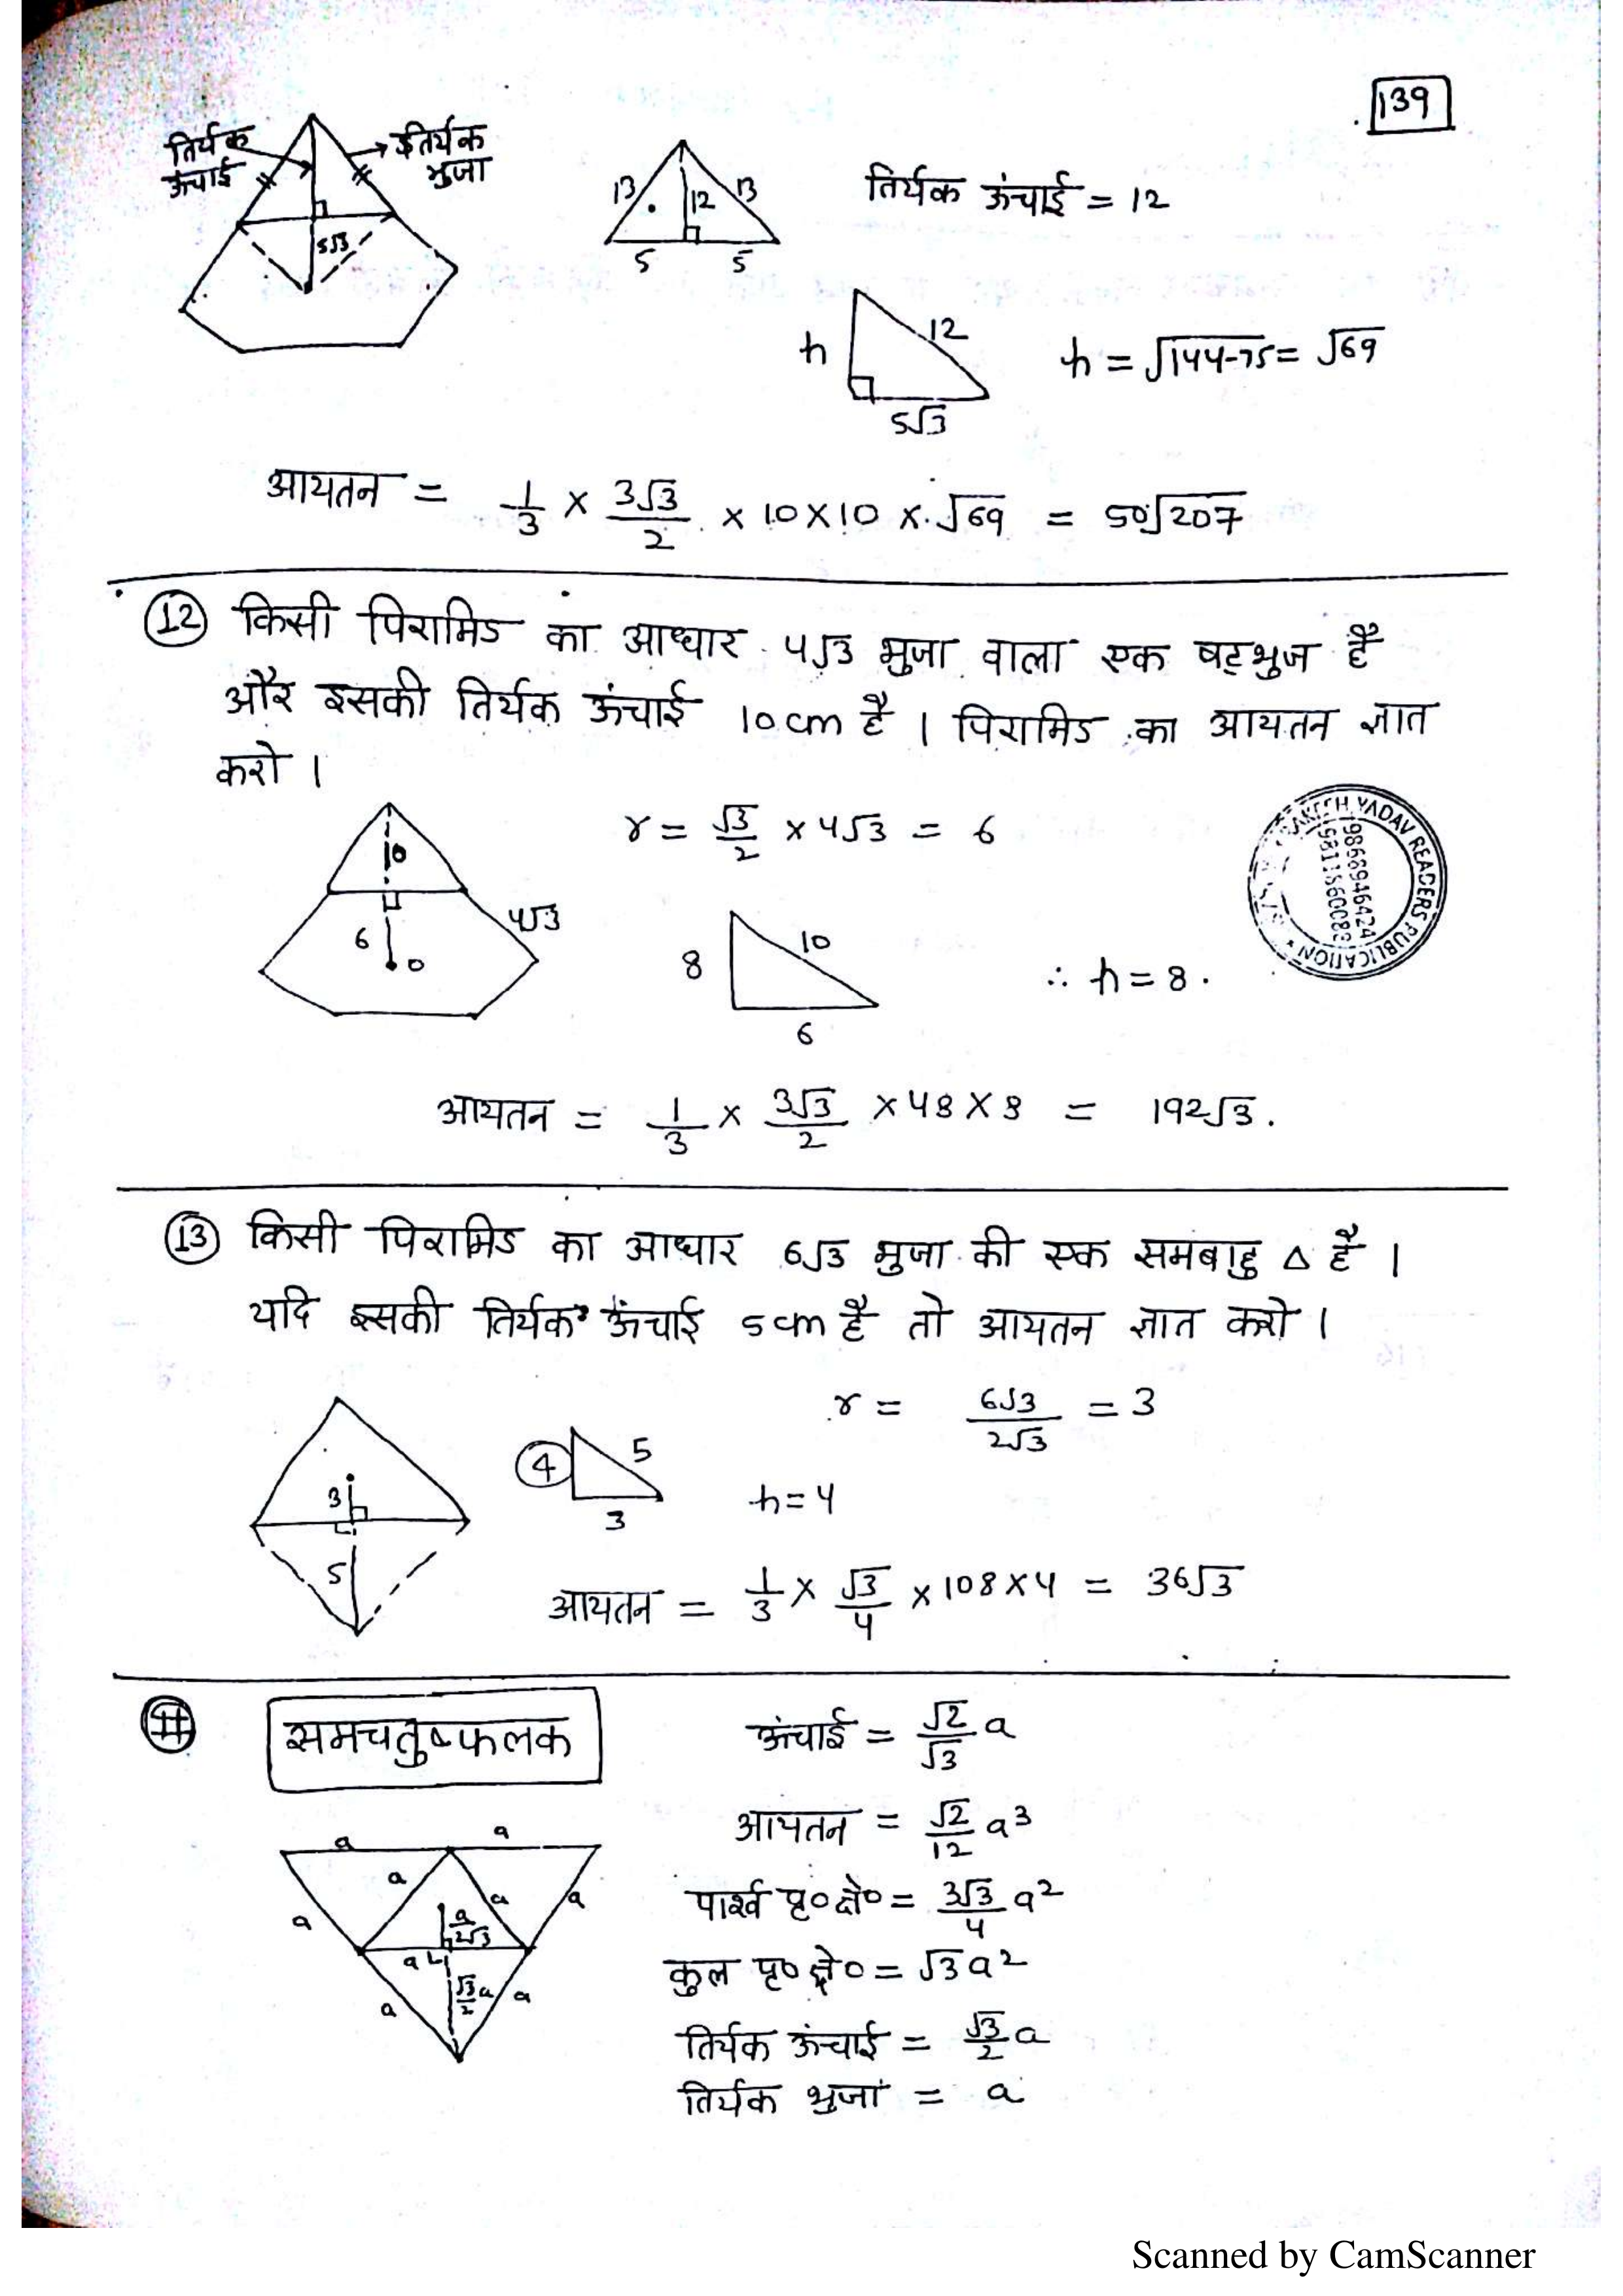 139
तिर्यक
ऊंचाई
तिर्यक
भुजा
5√3
13 12 13
5 5
तिर्यक ऊंचाई = 12
h 12
5√3
h = √144-75 = √69
आयतन = 1/3 × 3√3/2 × 10×10 × √69 = 50√207
12 किसी पिरामिड का आधार 4√3 भुजा वाला एक षट्भुज है
और इसकी तिर्यक ऊंचाई 10 cm है । पिरामिड का आयतन ज्ञात
करो ।
10
6 0
4√3
r = √3/2 × 4√3 = 6
8 10
6
∴ h = 8 .
YADAV READERS PUBLICATION
9868946424
9811860083
आयतन = 1/3 × 3√3/2 × 48 × 8 = 192√3.
13 किसी पिरामिड का आधार 6√3 भुजा की एक समबाहु △ है ।
यदि इसकी तिर्यक ऊंचाई 5 cm है तो आयतन ज्ञात करो ।
3
5
4 5
3
r = 6√3/2√3 = 3
h = 4
आयतन = 1/3 × √3/4 × 108 × 4 = 36√3
# समचतुष्फलक
ऊंचाई = √2/√3 a
आयतन = √2/12 a³
पार्श्व पृ० क्षे० = 3√3/4 a²
कुल पृ० क्षे० = √3a²
तिर्यक ऊंचाई = √3/2 a
तिर्यक भुजा = a
a a
a a a a
a/2√3
a
a √3/2 a a
Scanned by CamScanner